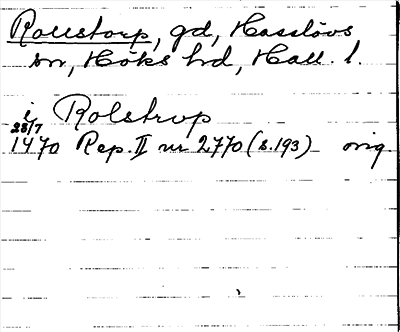 Rollstorp, gd, Hasslövs
sn, Höks hd, Hall. l.
i Rolstrup
28/7
1470 Rep. II nr 2770 (s. 193) orig